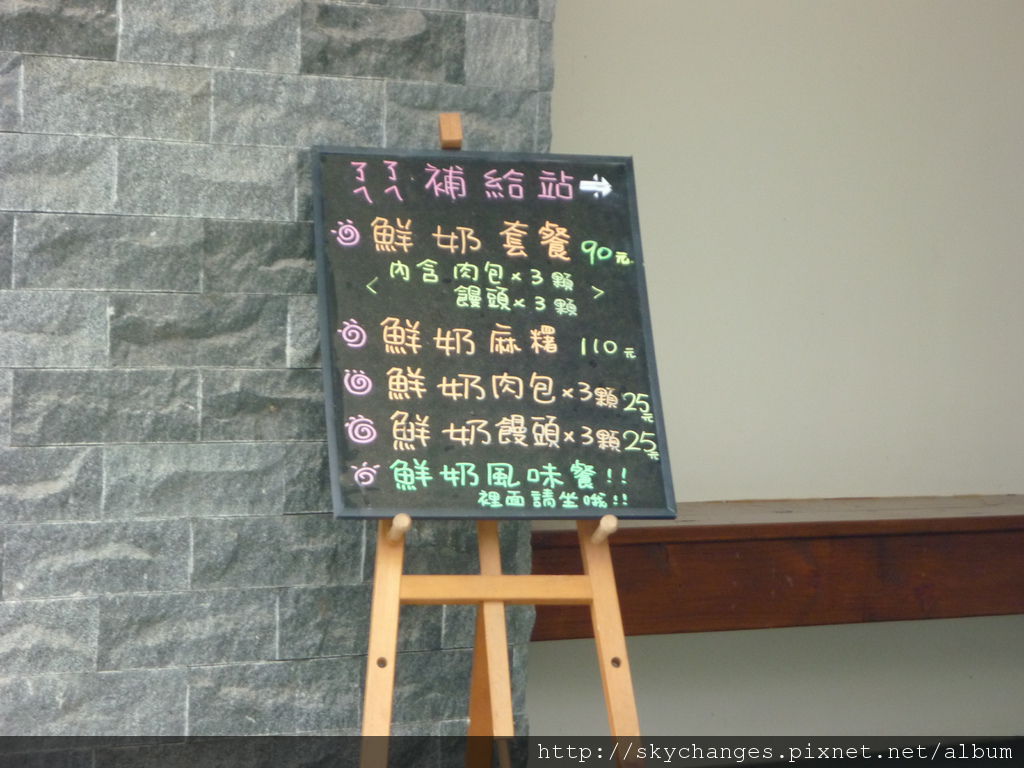 ㄋㄟ ㄋㄟ 補給站
鮮奶套餐 90元
<內含 肉包×3顆
饅頭×3顆>
鮮奶麻糬 110元
鮮奶肉包×3顆 25元
鮮奶饅頭×3顆 25元
鮮奶風味餐!!
裡面請坐哦!!
http://skychanges.pixnet.net/album